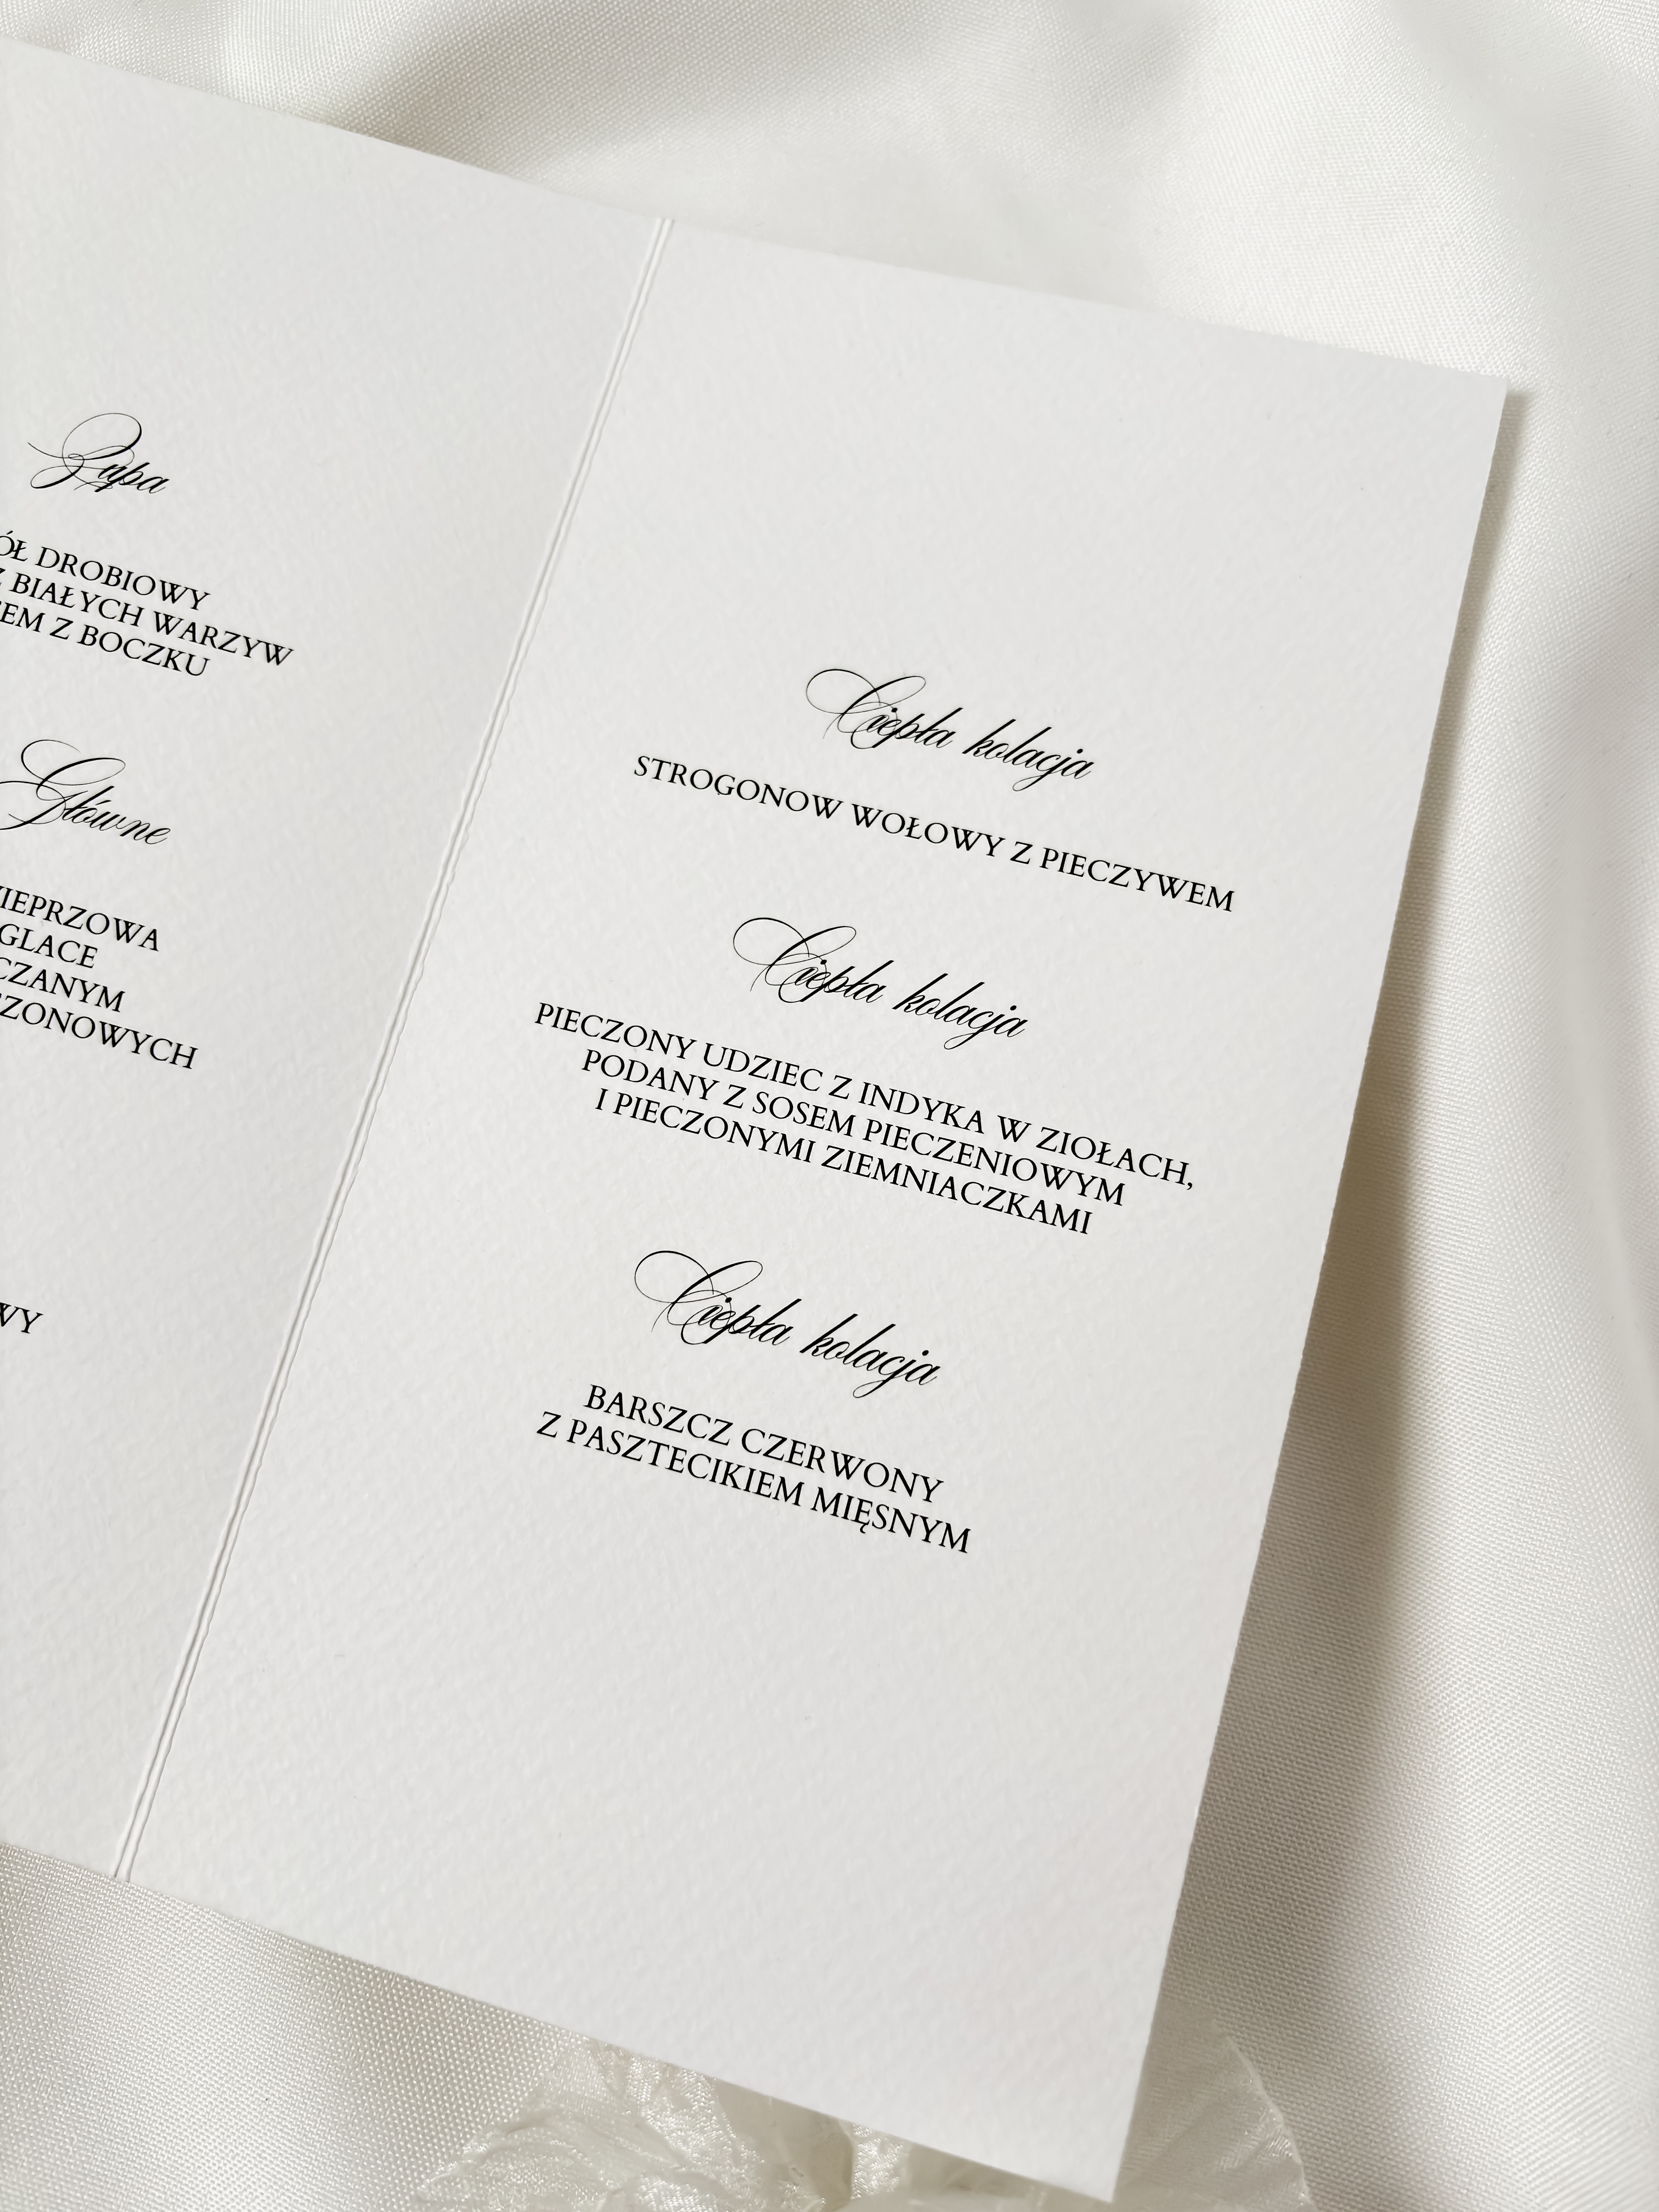 Zupa
DROBIOWY
BIAŁYCH WARZYW
Z BOCZKU
Główne
GLACE
WY
Ciepła kolacja
STROGONOW WOŁOWY Z PIECZYWEM
Ciepła kolacja
PIECZONY UDZIEC Z INDYKA W ZIOŁACH,
PODANY Z SOSEM PIECZENIOWYM
I PIECZONYMI ZIEMNIACZKAMI
Ciepła kolacja
BARSZCZ CZERWONY
Z PASZTECIKIEM MIĘSNYM